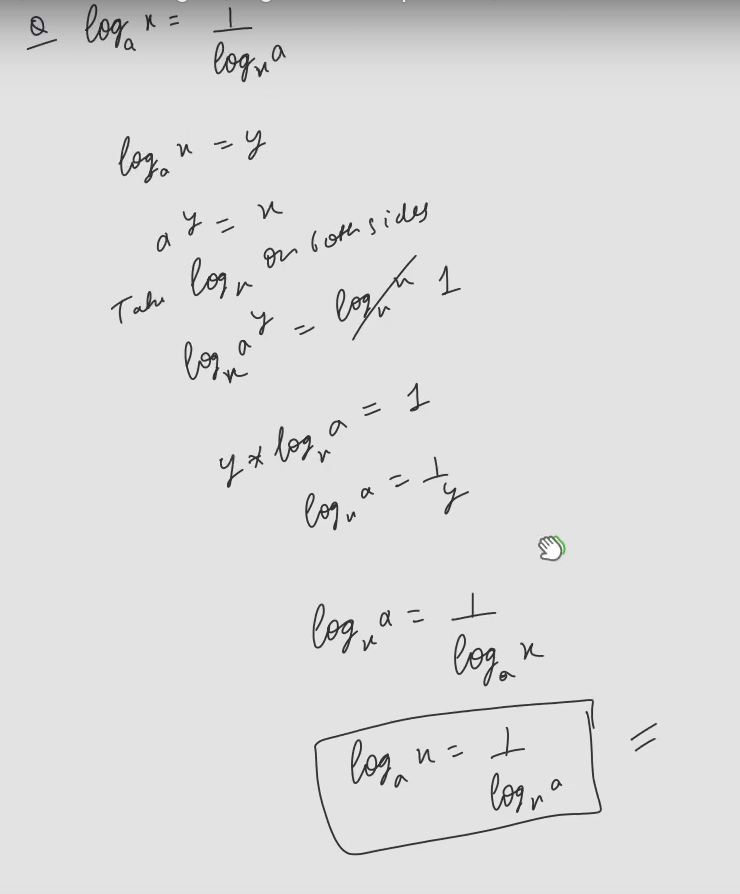 Q log_a x = 1/log_x a
log_a x = y
a^y = x
Take log_x on both sides
log_x a^y = log_x x 1
y * log_x a = 1
log_x a = 1/y
log_x a = 1/log_a x
log_a x = 1/log_x a =